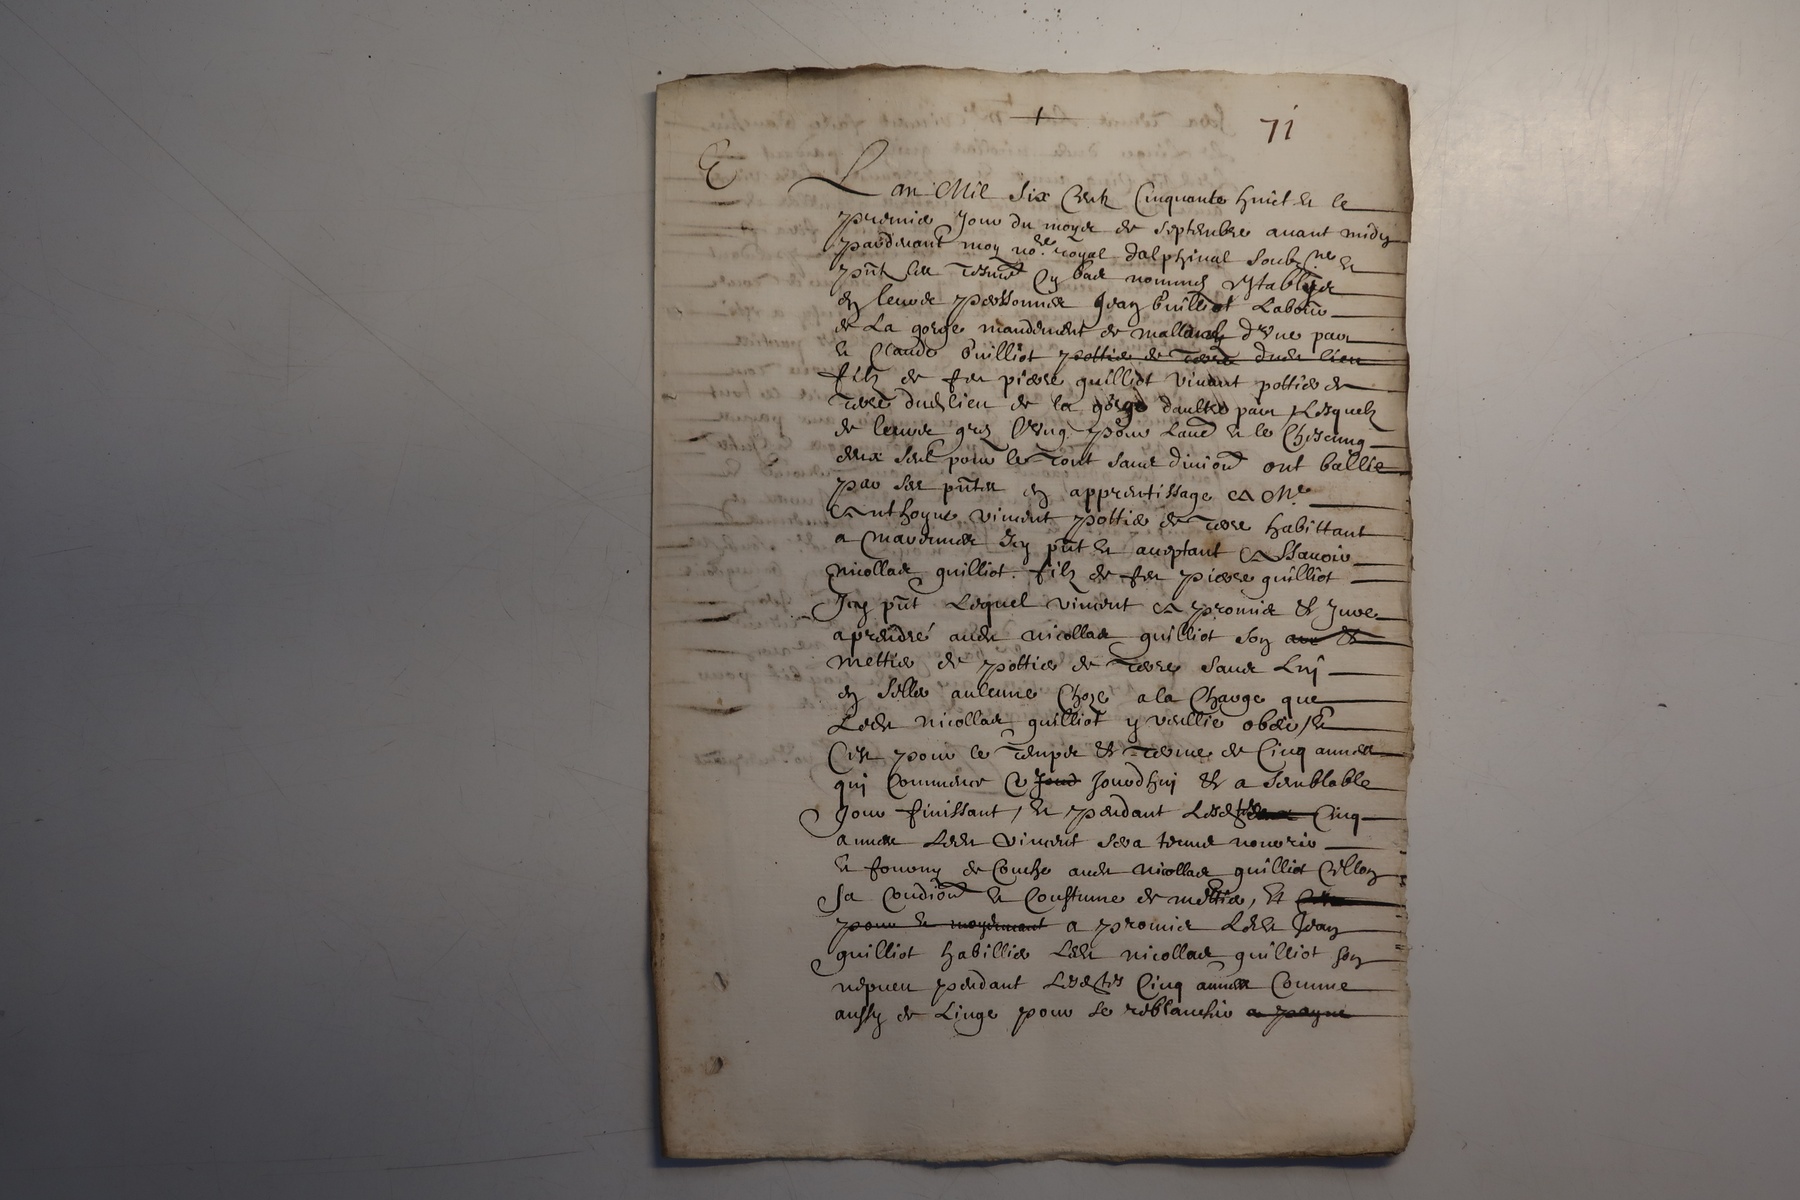 71
Lan Mil Six Cent Cinquante huict et le
premier Jour du moys de septembre avant midy
pardevant moy no.re royal dalphinal soubz.ne et
p̃nt les tesmoi͠g cy bas nommes establys
en leurs personnes Jean Guilliot Labour
de La gorge mandement de d'vne part
et Claude Guilliot pottier de terre dudt lieu
filz de feu pierre guilliot vivant pottier de
terre dudt lieu de la gorge daultre part Lesquelz
de leurs grez pour Laud et le
deux seul pour le tout sans division ont ballie
par ses p̃ntes en apprentissage A Me
Anthoyne vincent pottier de terre habittant
a Icy p̃nt et aceptant Assavoir
nicollas guilliot filz de feu pierre guilliot
Icy p̃nt Lequel vincent A promis et Jure
aprendre audt nicollas guilliot son
mettier de pottier de terre sans Luy
en seller aulcune Choze a la Charge que
Ledt nicollas guilliot y veullie obeir, Et
C'est pour le temps et terme de Cinq annees
qui Commence Ce Jourdhuy et a semblable
Jour finissant, et pendant Lesdtes Cinq
annees Ledt Vincent sera tenu nourrir
et fourny de Couche audt nicollas guilliot sellon
sa Condi͠on et Coustume de mettier, Et
pour et moyenant a promis Ledt Jean
guilliot habillier Ledt nicollas guilliot son
nepveu pendant Lesdtes Cinq annees Comme
aussy de Linge pour se reblanchir a payne